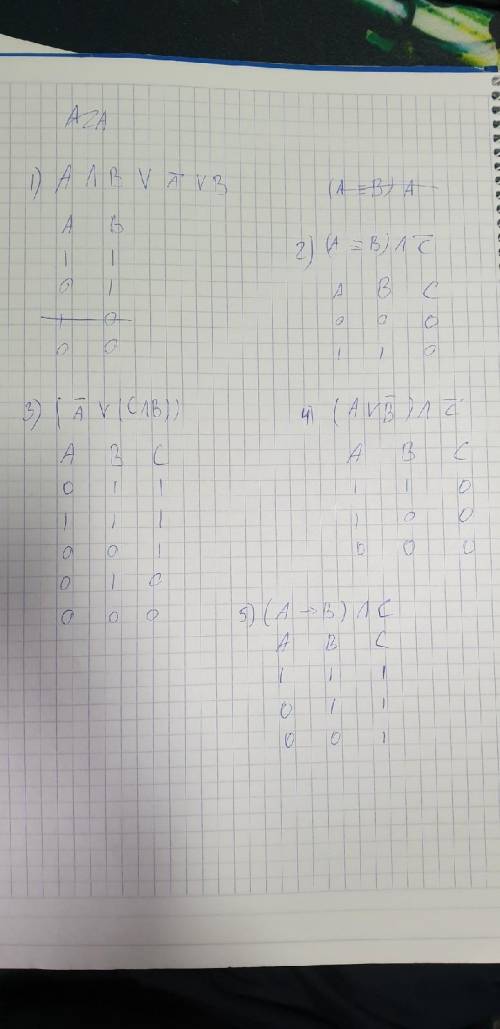 1) A ∧ B ∨ A̅ ∨ B
A B
1 1
0 1
1 0
0 0
(A ≡ B) A
2) (A ≡ B) ∧ C̅
A B C
0 0 0
1 1 0
3) (A̅ ∨ (C ∧ B))
A B C
0 1 1
1 1 1
0 0 1
0 1 0
0 0 0
4) (A ∨ B̅) ∧ C̅
A B C
1 1 0
1 0 0
0 0 0
5) (A → B) ∧ C
A B C
1 1 1
0 1 1
0 0 1